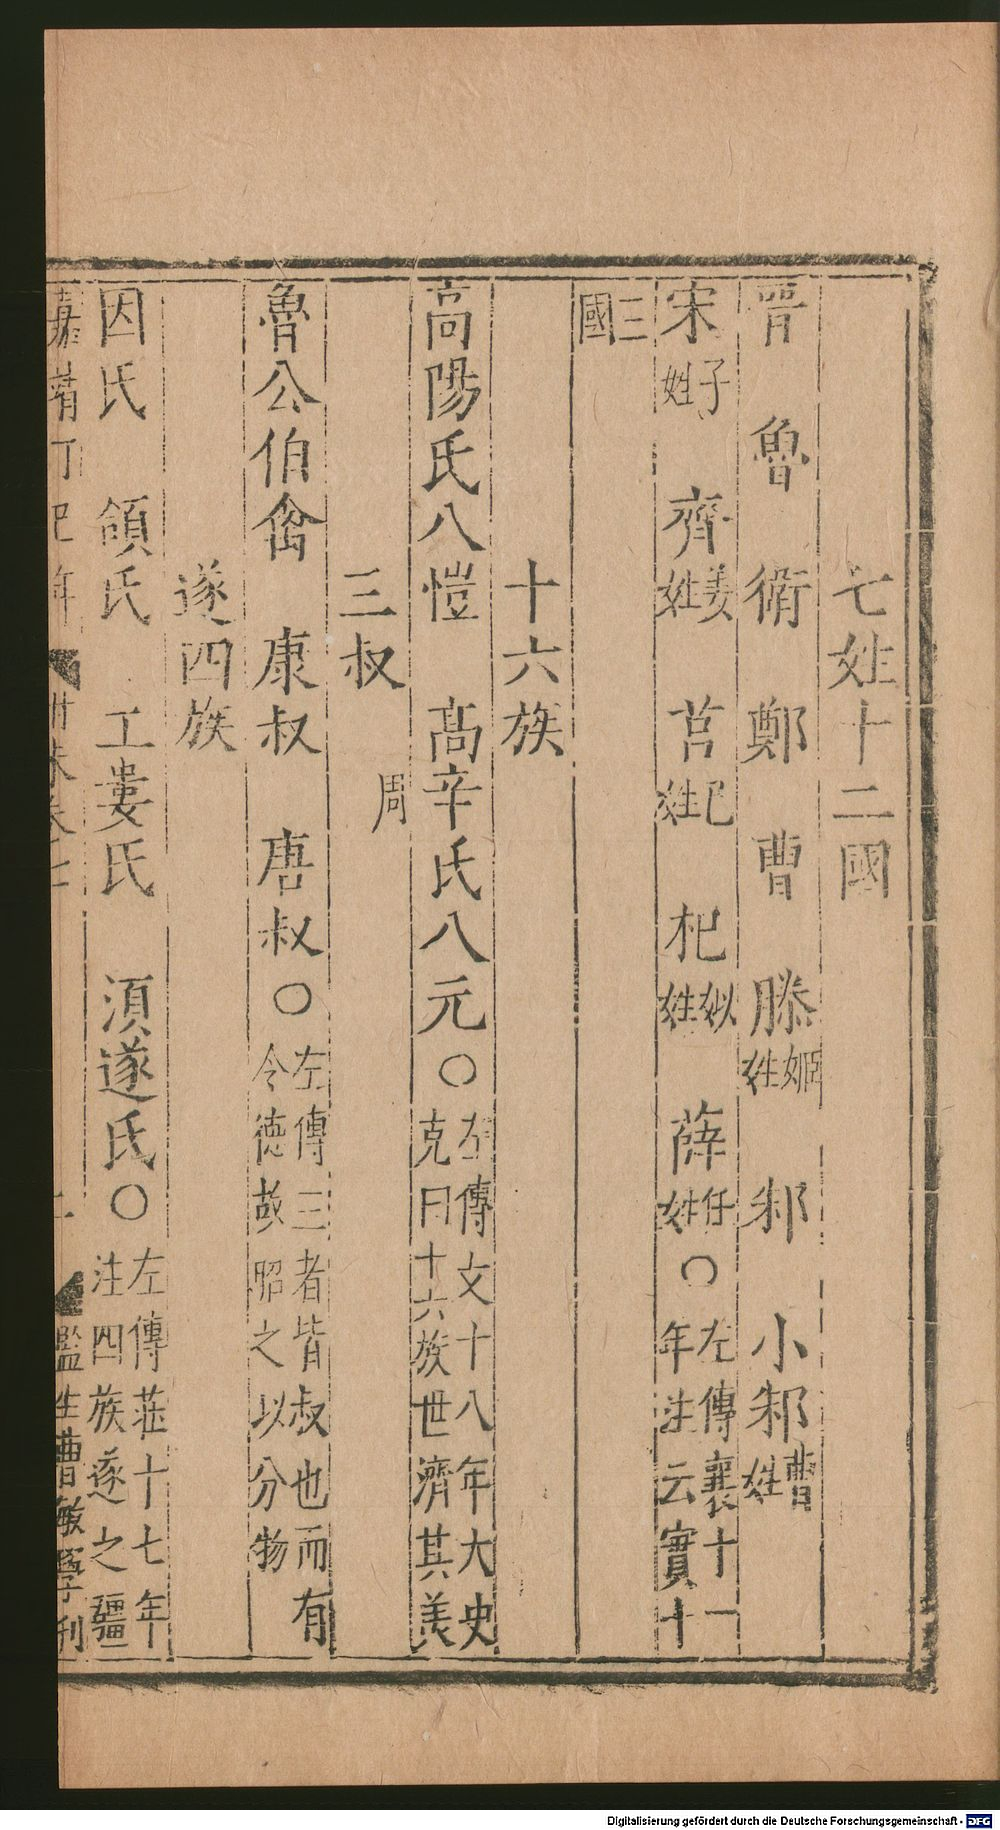 七姓十二國
晉 魯 衛 鄭 曹 滕姬姓 邾 小邾曹姓
宋子姓 齊姜姓 莒己姓 杞姒姓 薛任姓○左傳襄十一年注云實十
三國
十六族
高陽氏八愷 高辛氏八元○左傳文十八年大史克曰十六族世濟其美
三叔 周
魯公伯禽 康叔 唐叔○左傳三者皆叔也而有令德故昭之以分物
遂四族
因氏 頜氏 工婁氏 須遂氏○左傳莊十七年注四族遂之彊
嘉靖丁巳年 卷七 七 監生曹敏學刊
Digitalisierung gefördert durch die Deutsche Forschungsgemeinschaft - DFG